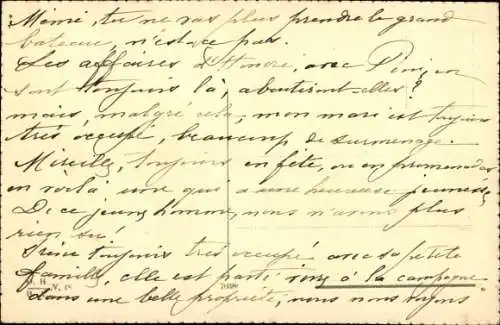 Mimie, tu ne vas plus prendre le grand
bateau, n'est-ce pas.
Les affaires d'Honoré, avec
sont toujours là, aboutiront-elles?
mais, malgré cela, mon mari est toujours
très occupé, beaucoup de surmenage.
Mireille, toujours en fête, ou en promenades
en voilà une qui a une heureuse jeunesse
De ce jeune homme, nous n'avons plus
rien su!
toujours très occupée avec sa petite
famille, elle est partie à la campagne
dans une belle propriété, nous nous voyons